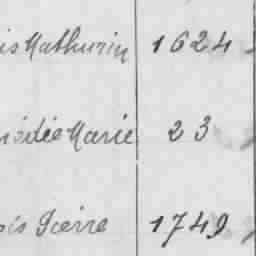 is Mathurin 1624
Marie 23
Pierre 1749